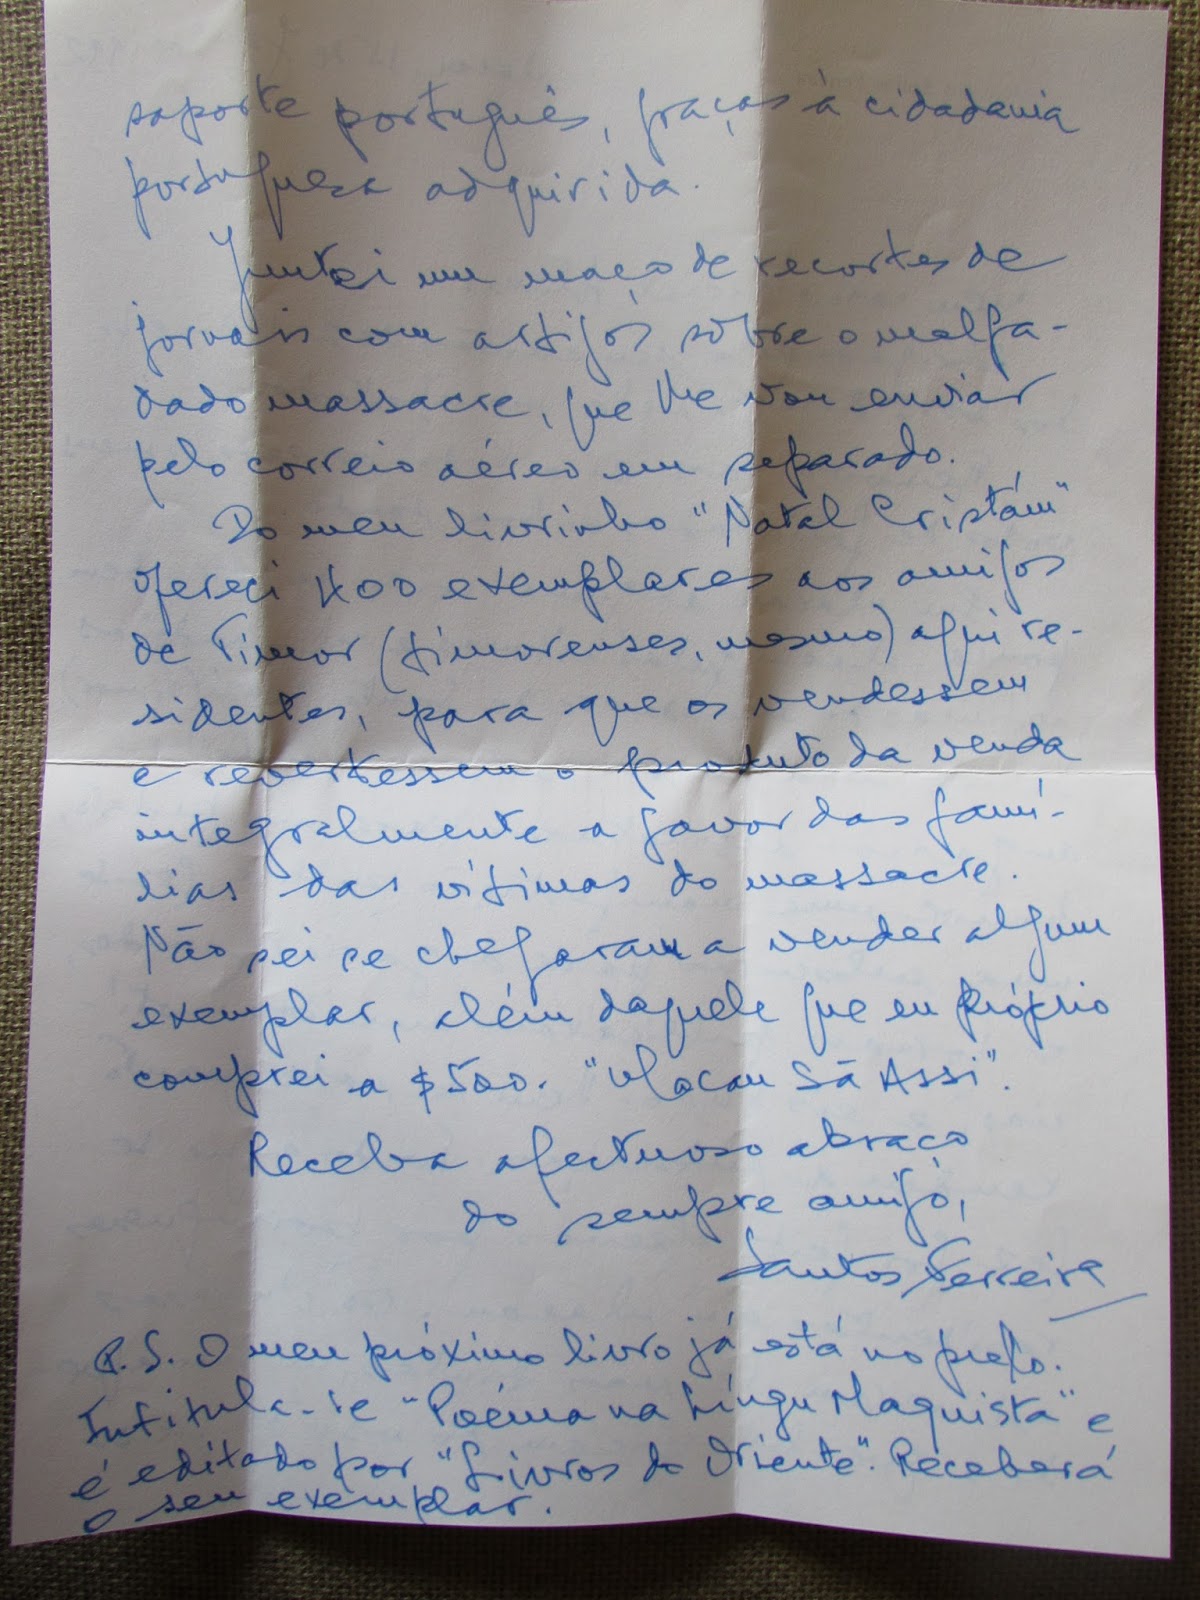 saporte português, graças à cidadania
portuguesa adquirida.
Juntei um maço de recortes de
jornais com artigos sôbre o malfa-
dado massacre, que lhe vou enviar
pelo correio aéreo em separado.
Do meu livrinho "Natal Cristám"
ofereci 400 exemplares aos amigos
de Timor (timorenses, mesmo) aqui re-
sidentes, para que os vendessem
e revertessem o produto da venda
integralmente a favor das famí-
lias das vítimas do massacre.
Não sei se chegaram a vender algum
exemplar, além daquele que eu próprio
comprei a $500. "Macau Sã Assi".
Receba afectuoso abraço
do sempre amigo,
Santos Ferreira
P.S. O meu próximo livro já está no prelo.
Intitula-se "Poéma na Língu Maquista" e
é editado por "Livros do Oriente". Receberá
o seu exemplar.